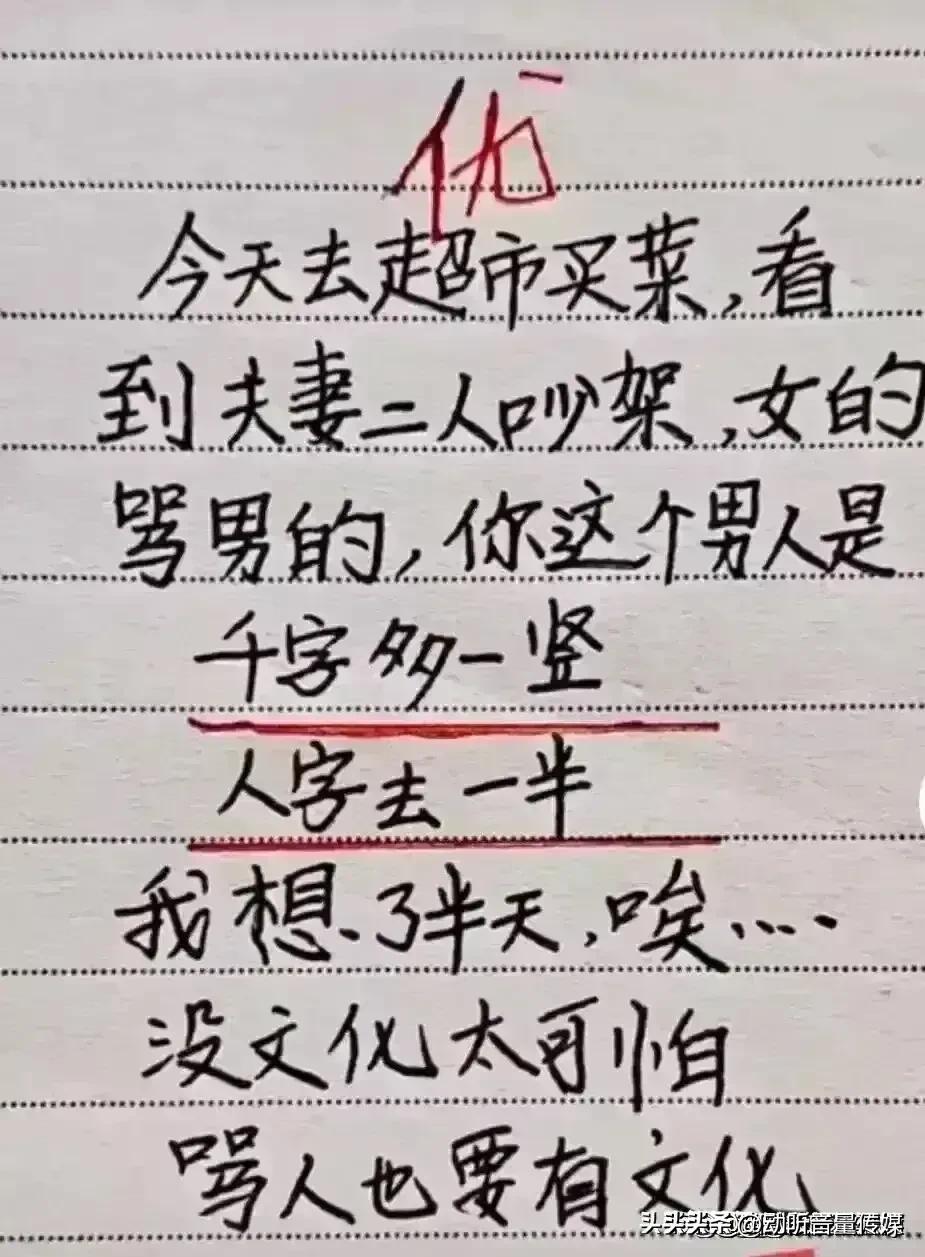 优
今天去超市买菜,看
到夫妻二人吵架,女的
骂男的,你这个男人是
千字多一竖
人字去一半
我想了半天,唉….
没文化太可怕
骂人也要有文化
头头头条@励听音量传媒